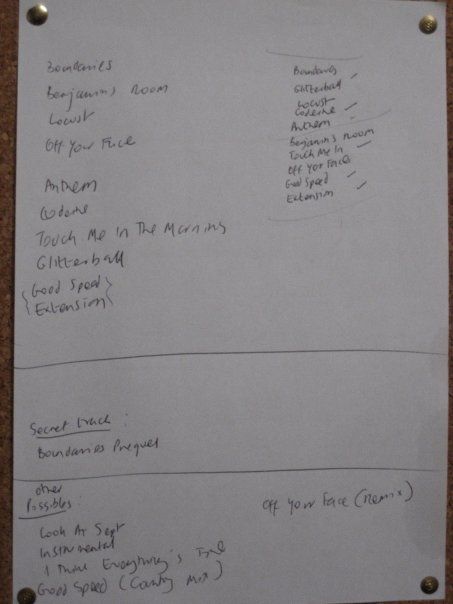 Boundaries
Benjamins Room
Locust
Off Your Face
Anthem
Codeine
Touch Me In The Morning
Glitterball
{Good Speed}
{Extension}
Boundaries
Glitterball
Locust
Codeine
Anthem
Benjamin's Room
Touch Me In
Off Your Face
Good Speed
Extension
Secret track :
Boundaries Prequel
other
Possibles :
Look At Sept
Instrumental
I Think Everything's Fine
Good Speed (Country Mix)
Off Your Face (Remix)